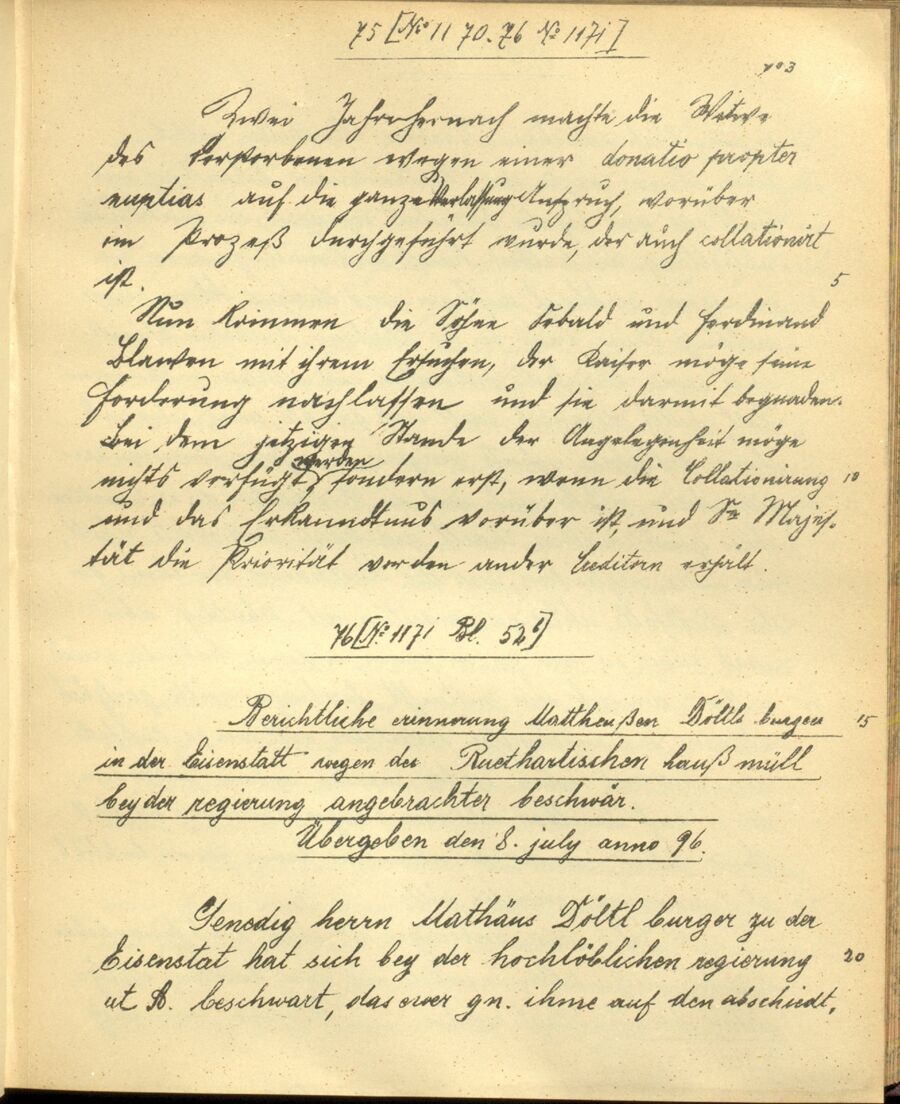 75 [No 1170. 76 No 1171]
703
Zwei Jahre hernach machte die Witwe
des Verstorbenen wegen einer donatio propter
nuptias auf die ganze Verlassung Anspruch, worüber
ein Prozeß durchgeführt wurde, der auch collationirt
ist. 5
Nun kommen die Söhne Sebald und Ferdinand
Blawen mit ihrem Ersuchen, der Kaiser möge seine
Forderung nachlassen und sie darmit begnaden.
Bei dem jetzigen Stande der Angelegenheit möge
nichts verfügt werden, sondern erst, wenn die Collationirung 10
und das Erkanndtnus vorüber ist, und Se Majes-
tät die Priorität vor den ander Creditorn erhält.
76 [No 1171 Bl. 52b]
Berichtliche erinnerung Mattheußen Döltls burger 15
in der Eisenstatt wegen der Ruethartischen hauß müll
bey der regierung angebrachter beschwär.
Übergeben den 8. july anno 96.
Genedig herrn Mathäus Döltl burger zu der
Eisenstat hat sich bey der hochlöblichen regierung 20
ut A. beschwart, das ewer gn. ihme auf den abschiedt,